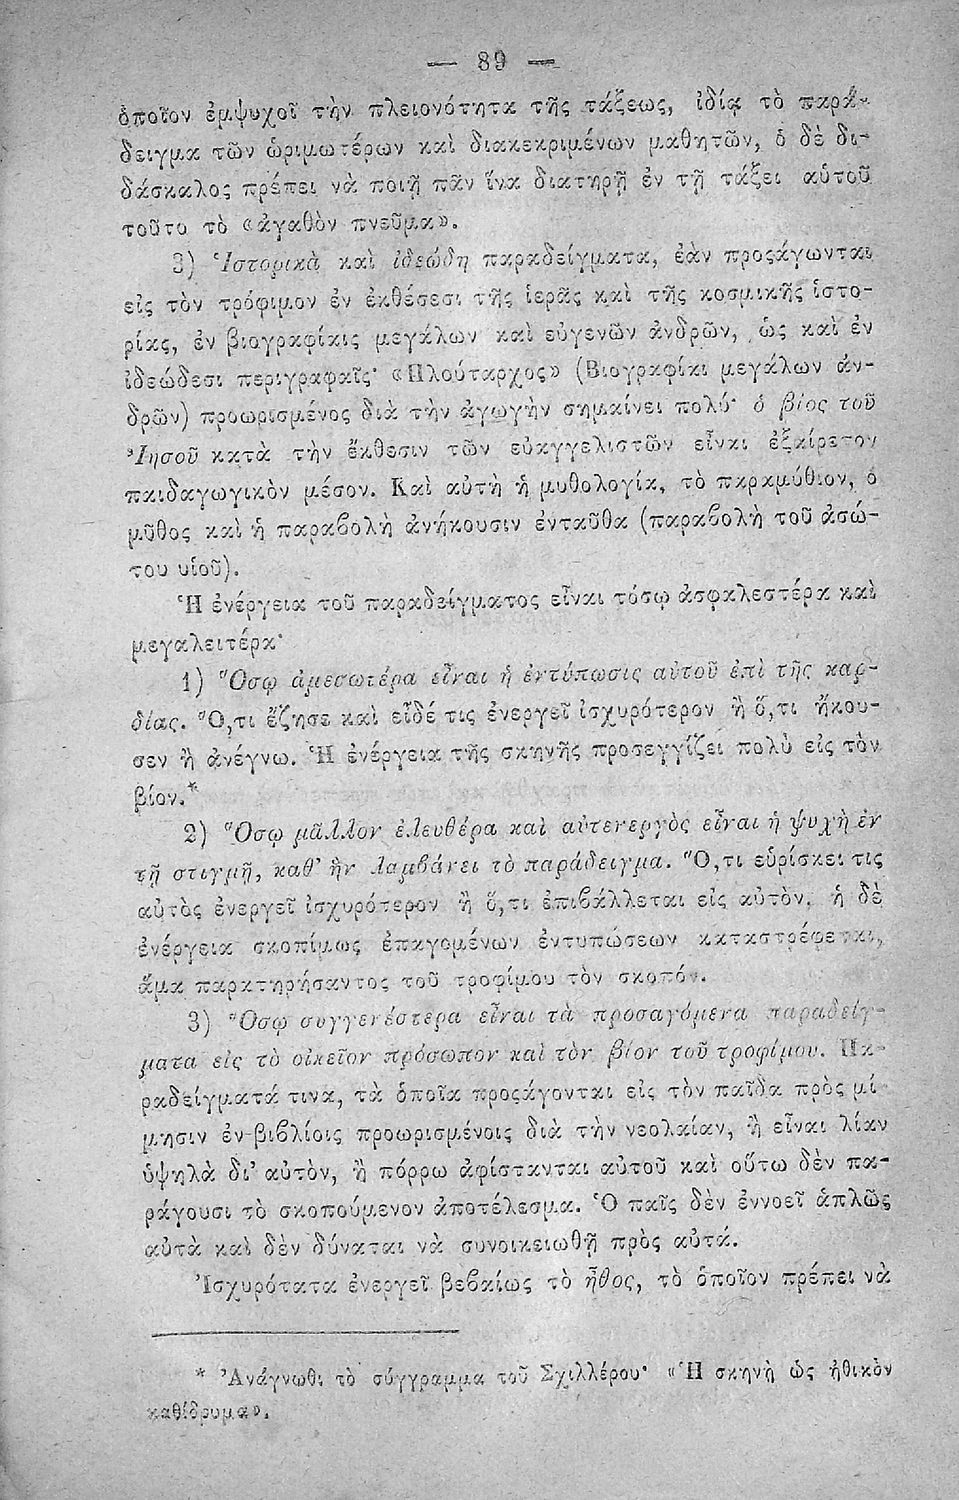 — 89 —
ὁποῖον ἐμψυχοῖ τὴν πλειονότητα τῆς τάξεως, ἰδίᾳ τὸ παρά-
δειγμα τῶν ὡριμωτέρων καὶ διακεκριμένων μαθητῶν, ὁ δὲ δι-
δάσκαλος πρέπει νὰ ποιῇ πᾶν ἵνα διατηρῇ ἐν τῇ τάξει αὐτοῦ
τοῦτο τὸ «ἀγαθὸν πνεῦμα».
3) Ἱστορικὰ καὶ ἰδεώδη παραδείγματα, ἐὰν προςάγωνται
εἰς τὸν τρόφιμον ἐν ἐκθέσεσι τῆς ἱερᾶς καὶ τῆς κοσμικῆς ἱστο-
ρίας, ἐν βιογραφίαις μεγάλων καὶ εὐγενῶν ἀνδρῶν, ὡς καὶ ἐν
ἰδεώδεσι περιγραφαῖς· «Πλούταρχος» (Βιογραφίαι μεγάλων ἀν-
δρῶν) προωρισμένος διὰ τὴν ἀγωγὴν σημαίνει πολύ· ὁ βίος τοῦ
Ἰησοῦ κατὰ τὴν ἔκθεσιν τῶν εὐαγγελιστῶν εἶναι ἐξαίρετον
παιδαγωγικὸν μέσον. Καὶ αὐτὴ ἡ μυθολογία, τὸ παραμύθιον, ὁ
μῦθος καὶ ἡ παραβολὴ ἀνήκουσιν ἐνταῦθα (παραβολὴ τοῦ ἀσώ-
του υἱοῦ).
Ἡ ἐνέργεια τοῦ παραδείγματος εἶναι τόσῳ ἀσφαλεστέρα καὶ
μεγαλειτέρα·
1) Ὅσῳ ἀμεσωτέρα εἶναι ἡ ἐντύπωσις αὐτοῦ ἐπὶ τῆς καρ-
δίας. Ὅ,τι ἔζησε καὶ εἶδέ τις ἐνεργεῖ ἰσχυρότερον ἢ ὅ,τι ἤκου-
σεν ἢ ἀνέγνω. Ἡ ἐνέργεια τῆς σκηνῆς προσεγγίζει πολὺ εἰς τὸν
βίον.*
2) Ὅσῳ μᾶλλον ἐλευθέρα καὶ αὐτενεργὸς εἶναι ἡ ψυχὴ ἐν
τῇ στιγμῇ, καθ' ἣν λαμβάνει τὸ παράδειγμα. Ὅ,τι εὑρίσκει τις
αὐτὸς ἐνεργεῖ ἰσχυρότερον ἢ ὅ,τι ἐπιβάλλεται εἰς αὐτὸν, ἡ δὲ
ἐνέργεια σκοπίμως ἐπαγομένων ἐντυπώσεων καταστρέφεται,
ἅμα παρατηρήσαντος τοῦ τροφίμου τὸν σκοπόν.
3) Ὅσῳ συγγενέστερα εἶναι τὰ προσαγόμενα παραδείγ-
ματα εἰς τὸ οἰκεῖον πρόσωπον καὶ τὸν βίον τοῦ τροφίμου. Πα-
ραδείγματά τινα, τὰ ὁποῖα προςάγονται εἰς τὸν παῖδα πρὸς μί
μησιν ἐν βιβλίοις προωρισμένοις διὰ τὴν νεολαίαν, ἢ εἶναι λίαν
ὑψηλὰ δι' αὐτὸν, ἢ πόρρω ἀφίστανται αὐτοῦ καὶ οὕτω δὲν πα-
ράγουσι τὸ σκοπούμενον ἀποτέλεσμα. Ὁ παῖς δὲν ἐννοεῖ ἁπλῶς
αὐτὰ καὶ δὲν δύναται νὰ συνοικειωθῇ πρὸς αὐτά.
Ἰσχυρότατα ἐνεργεῖ βεβαίως τὸ ἦθος, τὸ ὁποῖον πρέπει νὰ
* Ἀνάγνωθι τὸ σύγγραμμα τοῦ Σχιλλέρου· «Ἡ σκηνὴ ὡς ἠθικὸν
καθίδρυμα».